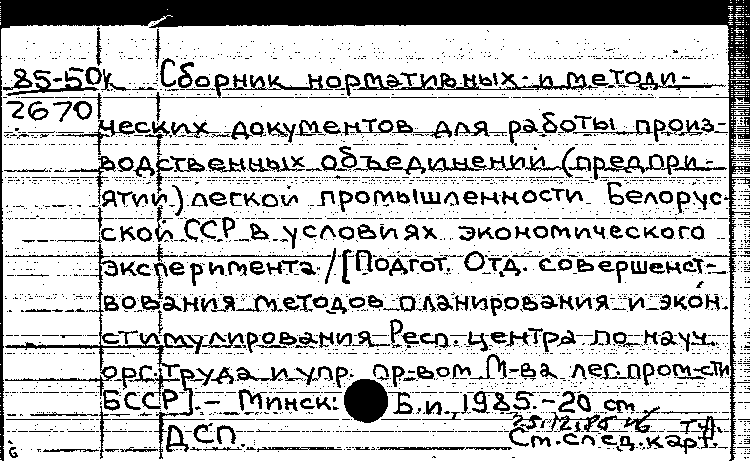 85-50к Сборник нормативных и методи-
2670
ческих документов для работы произ-
водственных объединений (предпри-
ятий) легкой промышленности Белорус-
ской ССР в условиях экономического
эксперимента / [Подгот. Отд. совершенст-
вования методов планирования и экон.
стимулирования Респ. центра по науч.
орг. труда и упр. пр-вом М-ва лег. пром-сти
БССР]. – Минск: Б.и., 1985. – 20 см
25.12.85
ДСП. См. след. карт.